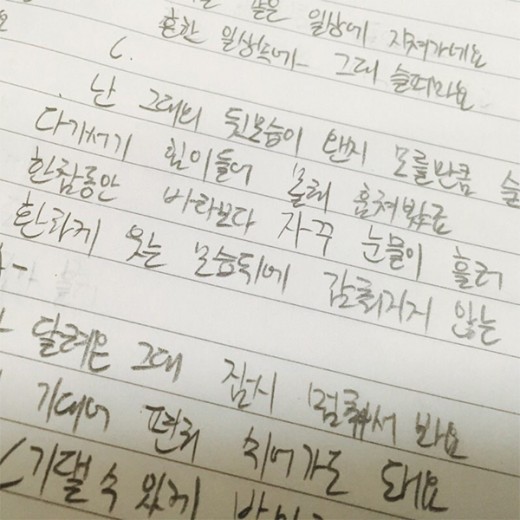 같은 일상에 지쳐가네요
흔한 일상속에 그대 슬퍼마요
난 그대의 뒷모습이 왠지 모를만큼 슬
다가서기 힘이들어 몰래 훔쳐봤죠
한참동안 바라보다 자꾸 눈물이 흘러
환하게 웃는 모습뒤에 감춰지지 않는
달려온 그대 잠시 멈춰서 봐요
기대어 편히 쉬어가도 돼요
기댈 수 있게